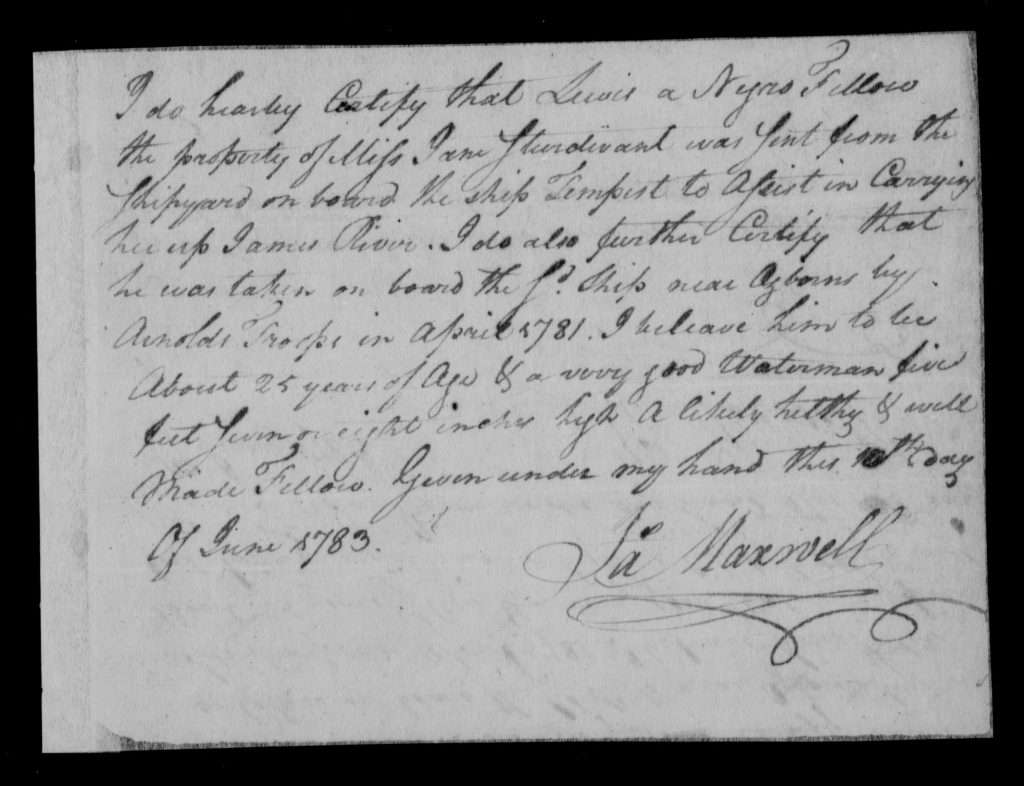 I do hearby Certify that Lewis a Negro Fellow
the property of Miss Jane Sturdivant was Sent from the
Shipyard on board the ship Tempest to Assist in Carrying
her up James River. I do also further Certify that
he was taken on board the Sd. Ship near Ozborns by
Arnolds Troops in April 1781. I beleave him to be
About 25 years of Age & a very good Waterman five
feet Seven or eight inches high A likely helthy & well
Made Fellow. Given under my hand this 10th day
Of June 1783.
Ja Maxwell